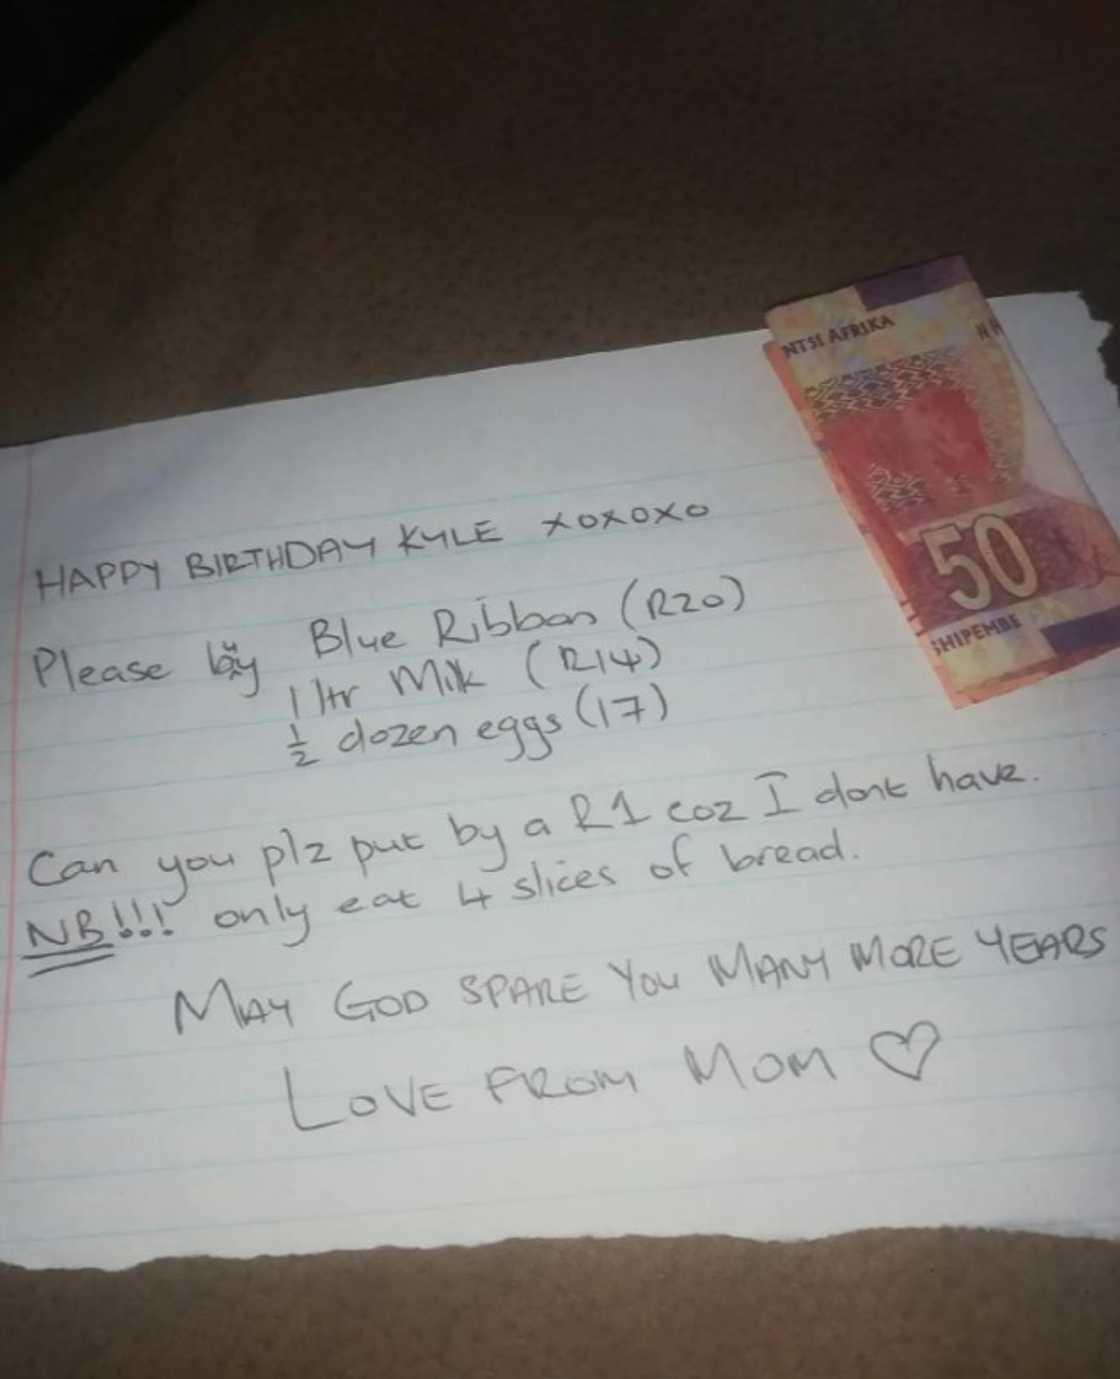 NTSI AFRIKA
50
SHIPEMBE
HAPPY BIRTHDAY KYLE XOXOXO
Please by Blue Ribbon (R20)
1 ltr Milk (R14)
½ dozen eggs (17)
Can you plz put by a R1 coz I dont have.
NB!!! only eat 4 slices of bread.
MAY GOD SPARE YOU MANY MORE YEARS
LOVE FROM MOM ♡